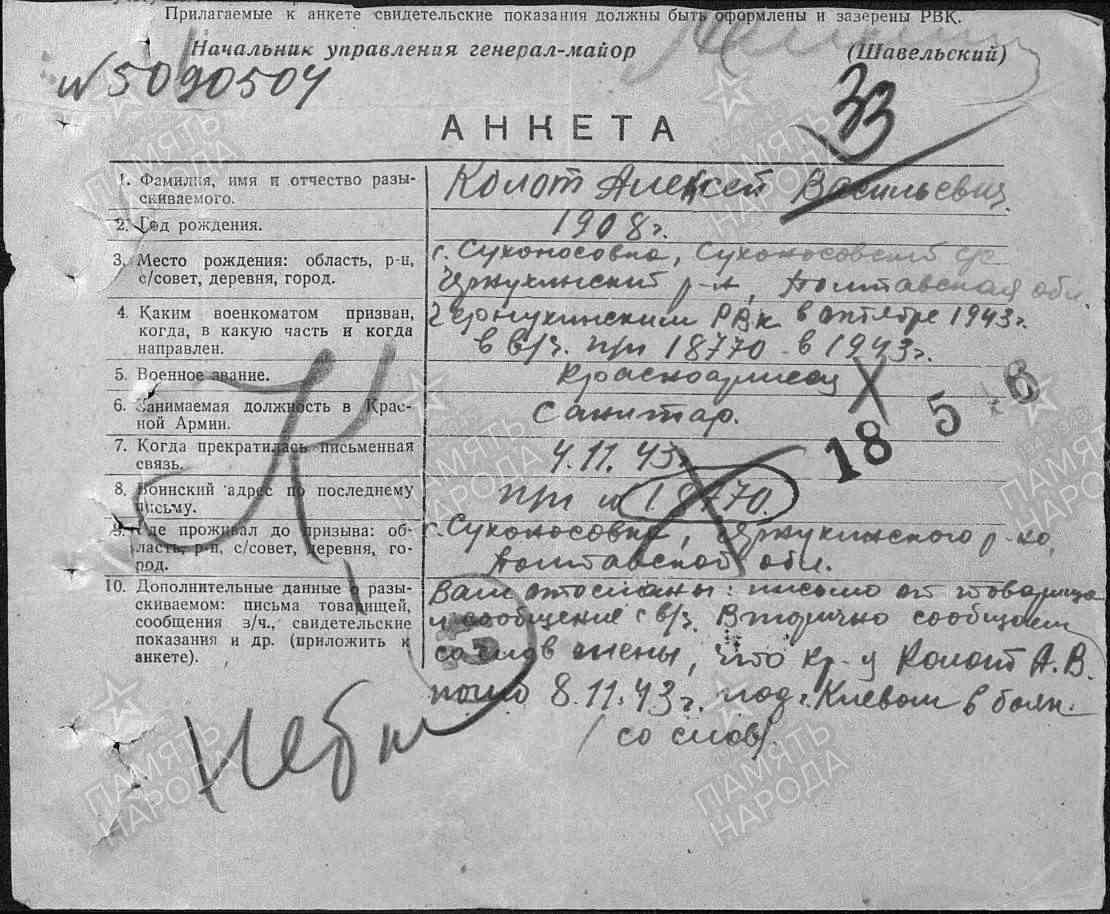 Прилагаемые к анкете свидетельские показания должны быть оформлены и зазерены РВК.
Начальник управления генерал-майор (Шавельский)
N 5090504
33
АНКЕТА
1. Фамилия, имя и отчество разы-
скиваемого.
Колот Алексей Васильевич.
2. Год рождения.
1908 г.
3. Место рождения: область, р-н,
с/совет, деревня, город.
г. Сухоносовка, Сухоносовский с/с
Чернухинский р-н, Полтавская обл.
4. Каким военкоматом призван,
когда, в какую часть и когда
направлен.
Чернухинским РВК в октябре 1943 г.
в в/ч. пп 18770 в 1943 г.
5. Военное звание.
Красноармеец
6. Занимаемая должность в Крас-
ной Армии.
Санитар.
7. Когда прекратилась письменная
связь.
4.11.43
18 5 6
8. Воинский адрес по последнему
письму.
пп 18770.
9. Где проживал до призыва: об-
ласть, р-н, с/совет, деревня, го-
род.
с. Сухоносовка, Чернухинского р-на,
Полтавской обл.
10. Дополнительные данные о разы-
скиваемом: письма товарищей,
сообщения з/ч., свидетельские
показания и др. (приложить к
анкете).
Вам отосланы: письмо от товарища
и сообщение с в/ч. Вторично сообщаем
со слов жены, что кр-ц Колот А.В.
погиб 8.11.43 г. под г. Киевом в
(со слов).
К
ПАМЯТЬ
НАРОДА
ПАМЯТЬ
НАРОДА
ПАМЯТЬ
НАРОДА
ПАМЯТЬ
НАРОДА
ПАМЯТЬ
НАРОДА
ПАМЯТЬ
НАРОДА